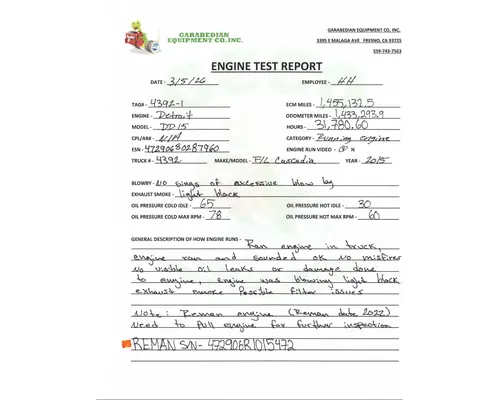 GARABEDIAN
EQUIPMENT CO. INC.
GARABEDIAN EQUIPMENT CO, INC.
3395 E MALAGA AVE FRESNO, CA 93725
559-743-7563
ENGINE TEST REPORT
DATE - 3/5/26 EMPLOYEE - HH
TAG# - 4392-1 ECM MILES - 1,455,132.5
ENGINE - Detroit ODOMETER MILES - 1,433,293.9
MODEL - DD15 HOURS - 31,780.60
CPL/AR# - N/A CATEGORY - Running engine
ESN - 472906S0287960 ENGINE RUN VIDEO - Y N
TRUCK # - 4392 MAKE/MODEL - F/L Cascadia YEAR - 2015
BLOWBY - No sings of excessive blow by
EXHAUST SMOKE - light black
OIL PRESSURE COLD IDLE - 65 OIL PRESSURE HOT IDLE - 30
OIL PRESSURE COLD MAX RPM - 78 OIL PRESSURE HOT MAX RPM - 60
GENERAL DESCRIPTION OF HOW ENGINE RUNS - Ran engine in truck,
engine ran and sounded ok No misfires
No visible oil leaks or damage done
to engine, engine was blowing light black
exhaust smoke Possible filter issues
Note: Reman engine (Reman date 2022)
Need to pull engine for further inspection
REMAN S/N- 472906R1015472